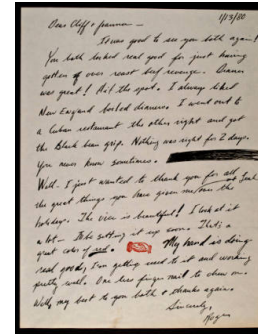 1/13/80
Dear Cliff +
It was good to see you both again!
You both looked real good for just having
gotten of over roast beef revenge. Dinner
was great! Hit the spot. I always liked
New England boiled dinners. I went out to
a Cuban restaurant the other night and got
the black bean grip. Nothing was right for 2 days.
You never know sometimes.
Well - I just wanted to thank you for all
the great things you have given me over the
holidays. The vice is beautiful! I look at it
a lot - I'll be setting it up soon. That's a
great color of red. My hand is doing
real good, I'm getting used to it and working
pretty well. One less finger nail to chew on.
Well, my best to you both + thanks again.
Sincerely,
Roger